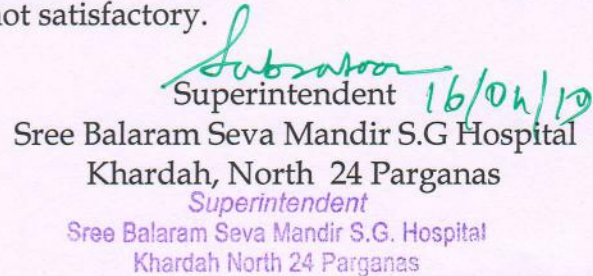 not satisfactory.
Superintendent 16/04/19
Sree Balaram Seva Mandir S.G Hospital
Khardah, North 24 Parganas
Superintendent
Sree Balaram Seva Mandir S.G. Hospital
Khardah North 24 Parganas